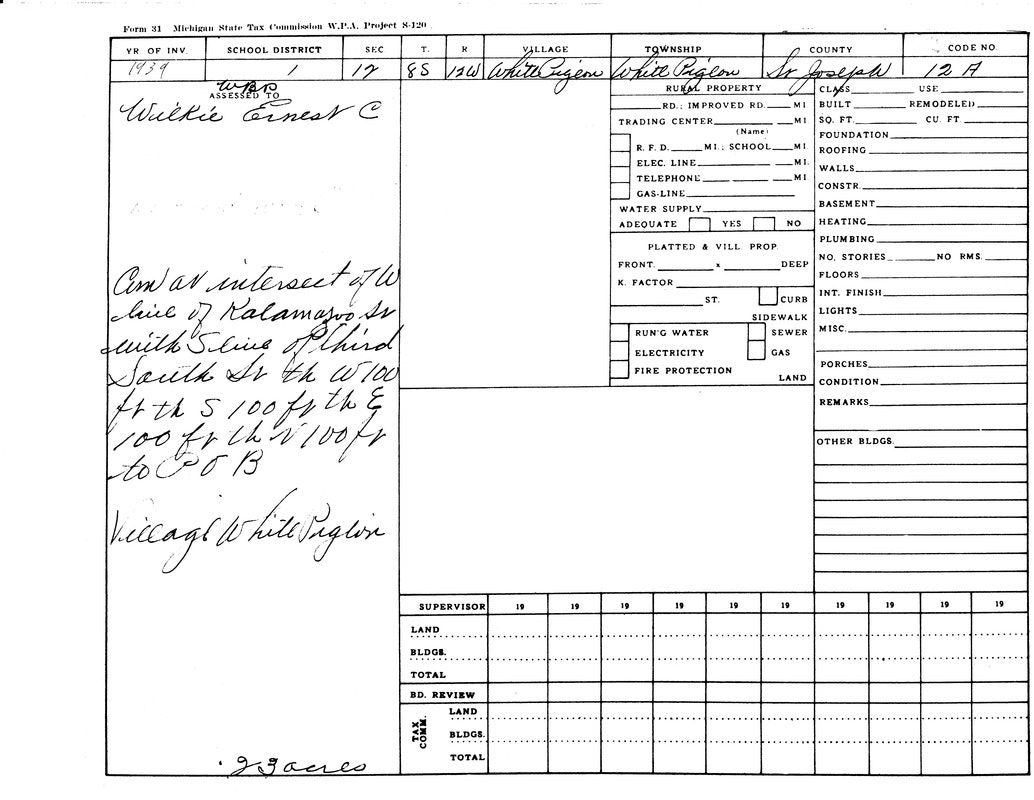 Form 31 Michigan State Tax Commission W.P.A. Project S-120
YR OF INV. SCHOOL DISTRICT SEC T. R VILLAGE TOWNSHIP COUNTY CODE NO.
1939 1 12 8S 12W White Pigeon White Pigeon St Joseph 12 A
WBP
ASSESSED TO
Wilkie Ernest C
Com at intersect of W
line of Kalamazoo St
with S line of Third
South St th W 100
ft th S 100 ft th E
100 ft th N 100 ft
to P O B
Village White Pigeon
.23 acres
RURAL PROPERTY
RD.; IMPROVED RD. MI.
TRADING CENTER MI.
(Name)
R. F. D. MI.; SCHOOL MI.
ELEC. LINE MI.
TELEPHONE MI.
GAS-LINE
WATER SUPPLY
ADEQUATE YES NO
PLATTED & VILL PROP.
FRONT. x DEEP
K. FACTOR
ST. CURB
SIDEWALK
RUN'G WATER SEWER
ELECTRICITY GAS
FIRE PROTECTION
LAND
CLASS USE
BUILT REMODELED
SQ. FT. CU. FT.
FOUNDATION
ROOFING
WALLS
CONSTR.
BASEMENT
HEATING
PLUMBING
NO. STORIES NO RMS.
FLOORS
INT. FINISH
LIGHTS
MISC.
PORCHES
CONDITION
REMARKS
OTHER BLDGS.
SUPERVISOR 19 19 19 19 19 19 19 19 19 19
LAND
BLDGS.
TOTAL
BD. REVIEW
TAX COMM.
LAND
BLDGS.
TOTAL